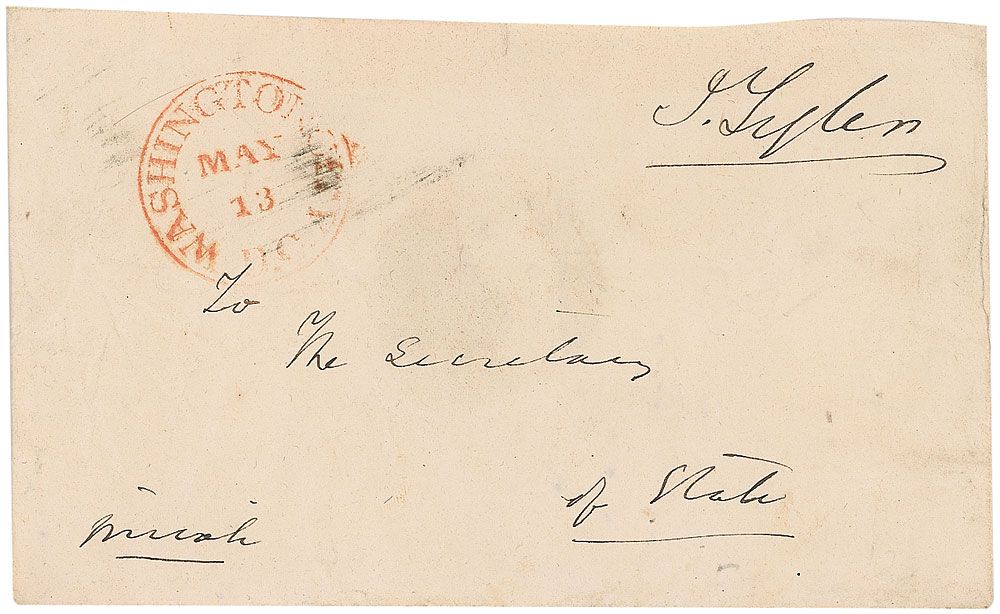 J. Tyler
WASHINGTON CITY
MAY
13
D.C.
To
The Secretary
of State
private